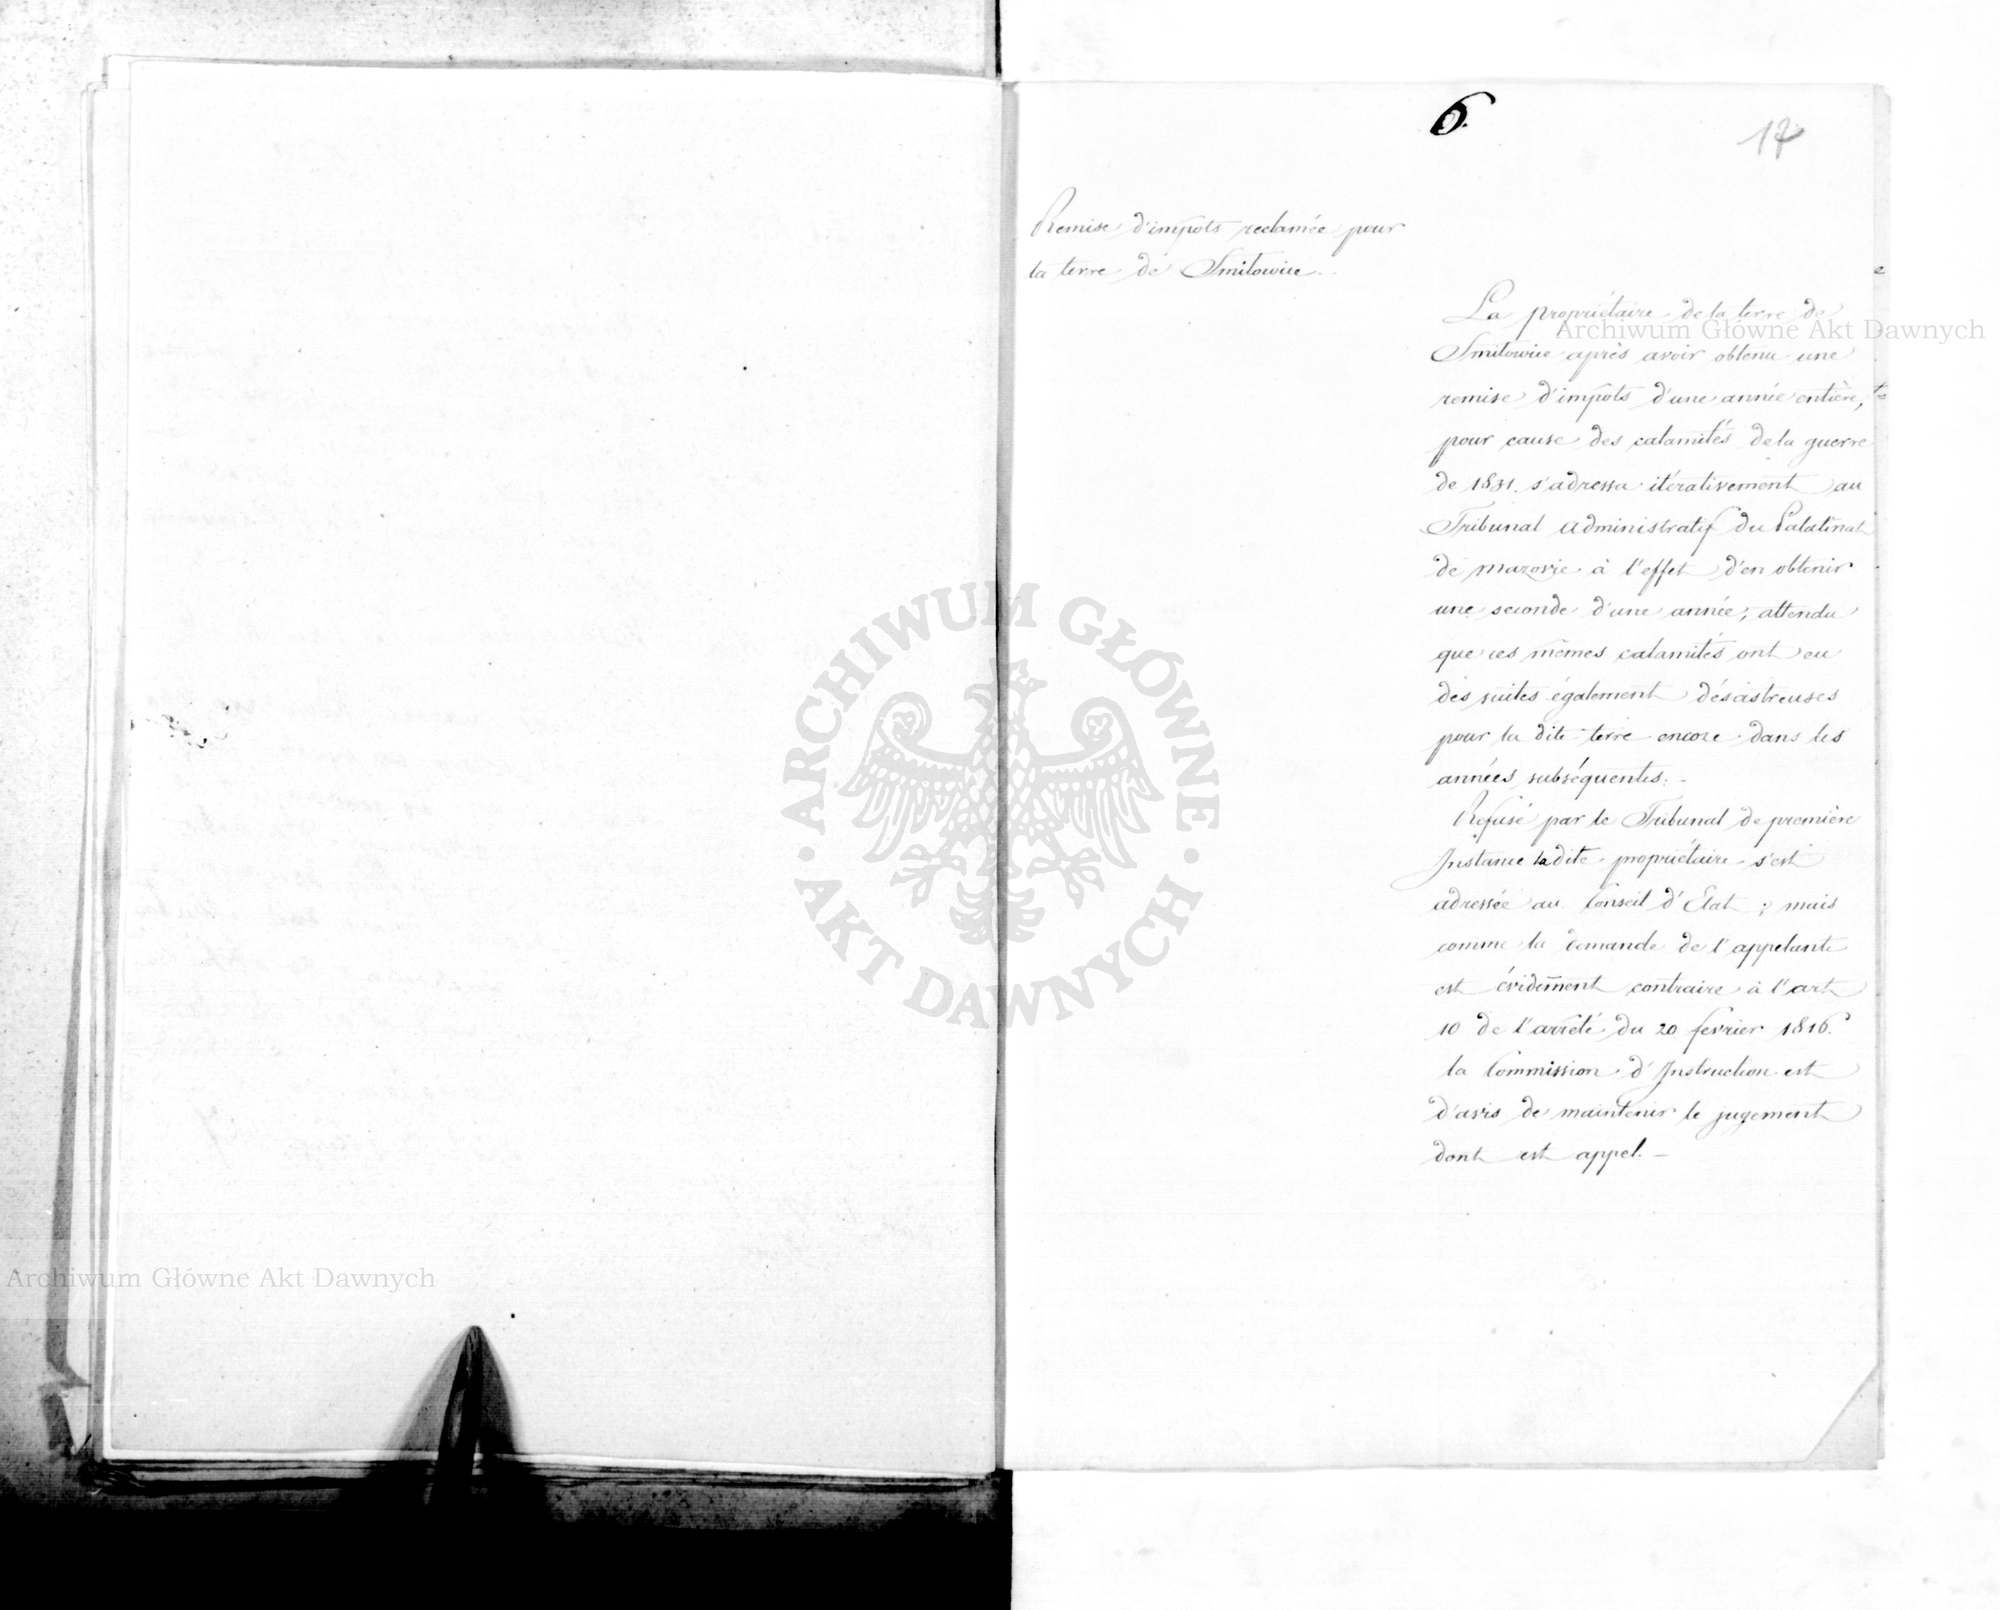 6.
17
Remise d'impots reclamée pour
la terre de Smitowice.
La propriétaire de la terre de
Smitowice après avoir obtenu une
remise d'impots d'une année entière,
pour cause des calamités de la guerre
de 1831. s'adressa itérativement au
Tribunal administratif du Palatinat
de mazovie à l'effet d'en obtenir
une seconde d'une année, attendu
que ces mêmes calamités ont eu
des suites également désastreuses
pour la dite terre encore dans les
années subséquentes. -
Refusé par le Tribunal de première
Instance la dite propriétaire s'est
adressée au Conseil d'Etat ; mais
comme la demande de l'appelante
est évidem̄ent contraire à l'art
10 de l'arrêté du 20 fevrier 1816.
la Commission d'Instruction est
d'avis de maintenir le jugement
dont est appel. -
Archiwum Główne Akt Dawnych
ARCHIWUM GŁÓWNE · AKT DAWNYCH ·
Archiwum Główne Akt Dawnych